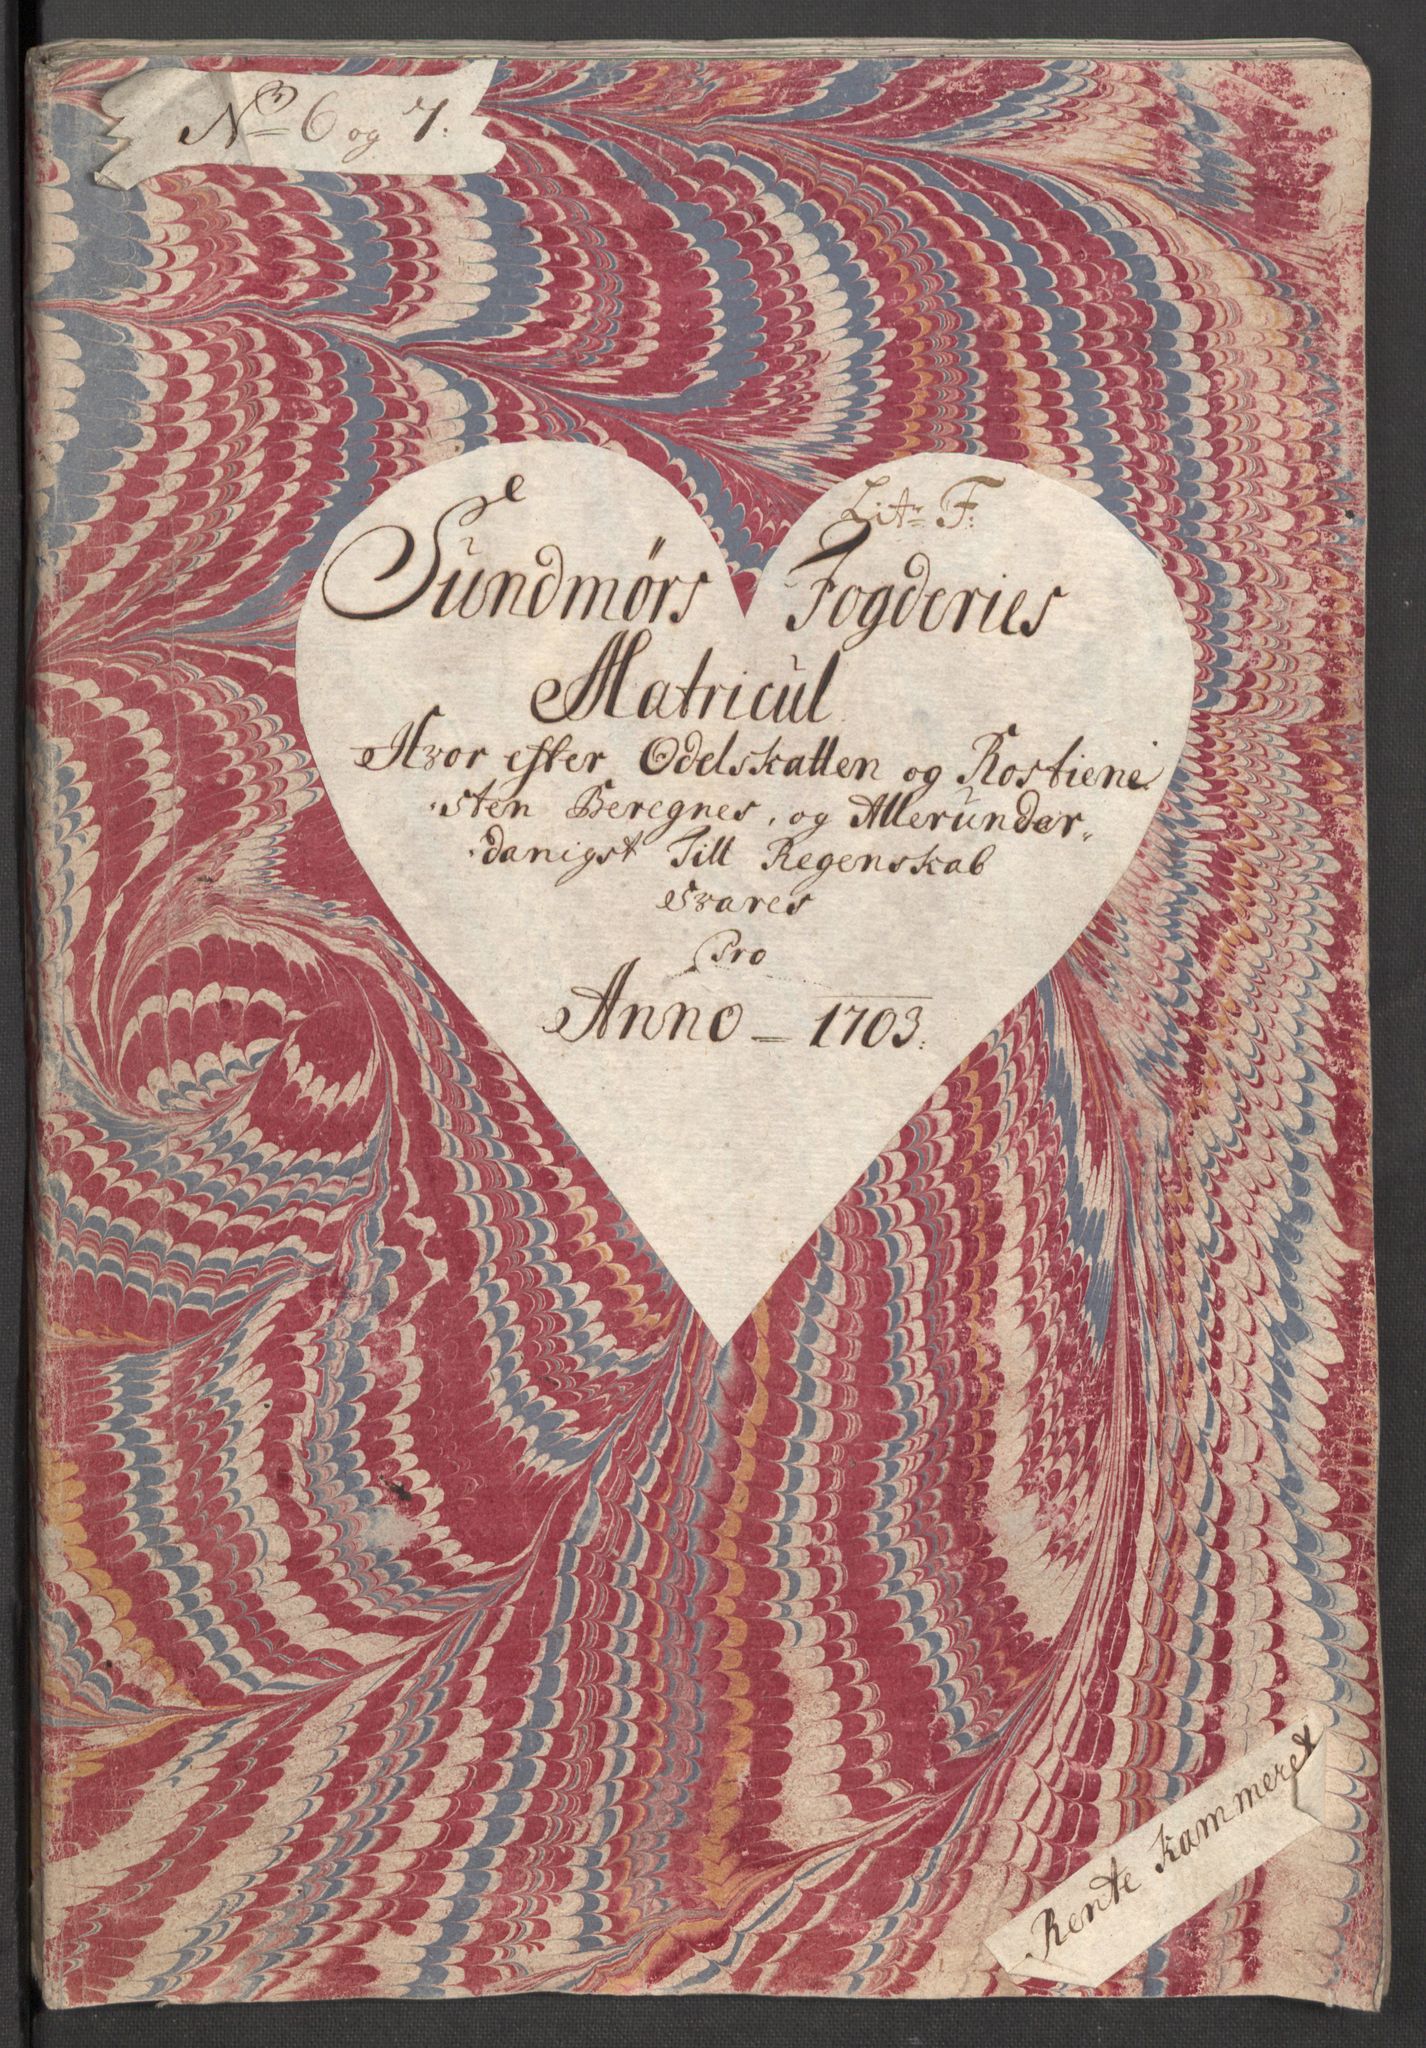 No 6 og 7:
Litr F:
Sundmørs Fogderies
Matricul
Hvor efter Odelskatten og Rostiene
sten Beregnes, og Allerunder„
danigst Till Regenskab
svares
Pro
Anno - 1703.
Rente Kammeret